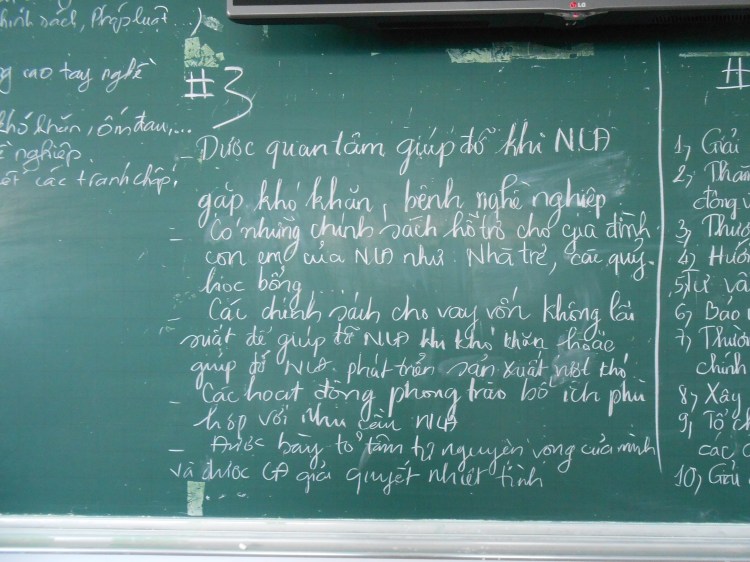 hính sách, Pháp luật...)
g cao tay nghề
khó khăn, ốm đau,...
ề nghiệp.
ết các tranh chấp,
LG
#3
- Được quan tâm giúp đỡ khi NLĐ
gặp khó khăn, bệnh nghề nghiệp
- Có những chính sách hỗ trợ cho gia đình
con em của NLĐ như: Nhà trẻ, các quỹ
học bổng
- Các chính sách cho vay vốn không lãi
suất để giúp đỡ NLĐ khi khó khăn hoặc
giúp đỡ NLĐ phát triển sản xuất
- Các hoạt động phong trào bổ ích phù
hợp với nhu cầu NLĐ
- Được bày tỏ tâm tư nguyện vọng của mình
và được CĐ giải quyết nhiệt tình
....
#
1, Giải
2, Tham
động v
3, Thươ
4, Hướn
5, Tư vấ
6, Báo
7, Thườn
chính
8, Xây
9, Tổ ch
các
10, Giải